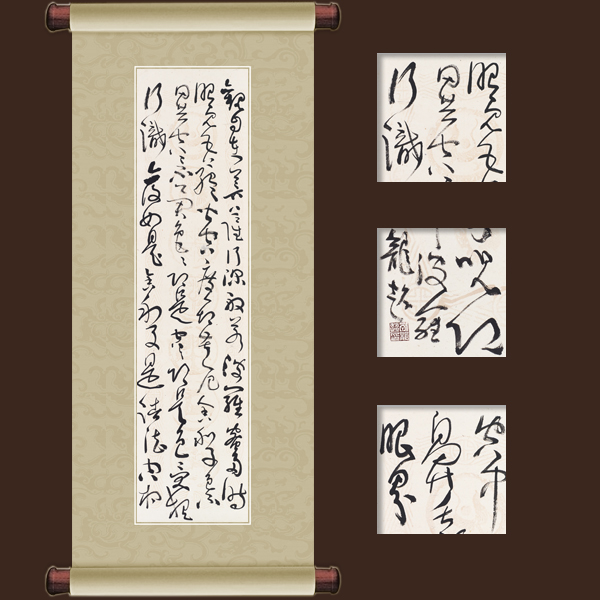 觀自在菩薩行深般若波羅蜜多時
照見五蘊皆空度一切苦厄舍利子色不
異空空不異色色即是空空即是色受想
行識亦復如是舍利子是諸法空相
照見五
異空空
行識
咒即
波羅
龍
眼界